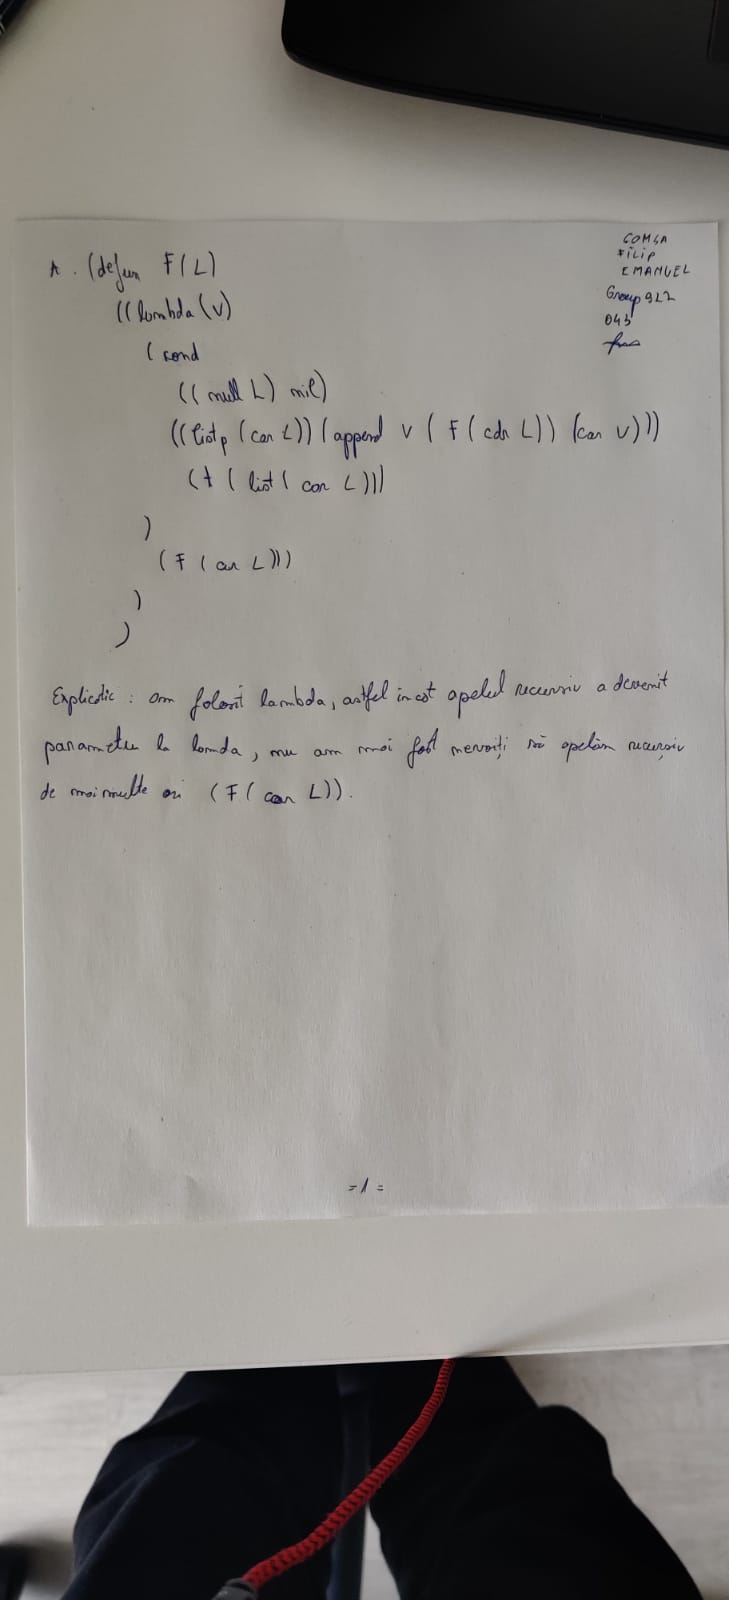 COMSA
FILIP
EMANUEL
Group 922
A. (defun F(L)
((lambda (v)
(cond
((null L) nil)
((listp (car L)) (append v (F (cdr L)) (car v)))
(t (list (car L)))
)
(F (car L)))
)
)
Explicatie : am folosit lambda, astfel incat apelul recursiv a devenit
parametru la lamda, nu am mai fost nevoiți să apelăm recursiv
de mai multe ori (F (car L)).
=1=